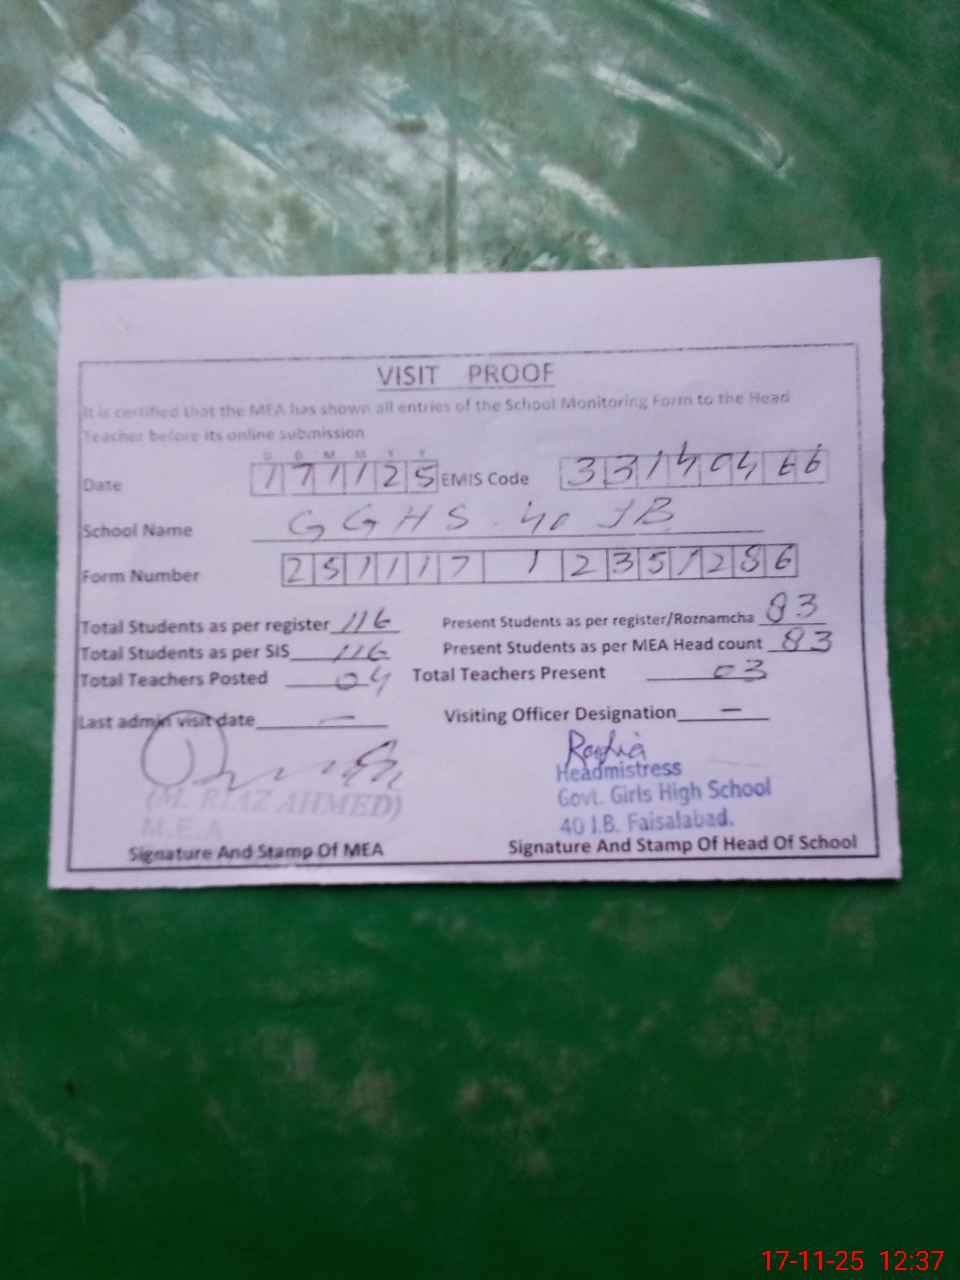 VISIT PROOF
It is certified that the MEA has shown all entries of the School Monitoring Form to the Head
Teacher before its online submission
D D M M Y Y
Date 171125 EMIS Code 33140466
School Name GGHS 40 JB
Form Number 251117 1 2351286
Total Students as per register 116 Present Students as per register/Roznamcha 83
Total Students as per SIS 116 Present Students as per MEA Head count 83
Total Teachers Posted 04 Total Teachers Present 03
Last admin visit date — Visiting Officer Designation —
Headmistress
(M. RIAZ AHMED) Govt. Girls High School
M.E.A 40 J.B. Faisalabad.
Signature And Stamp Of MEA Signature And Stamp Of Head Of School
17-11-25 12:37